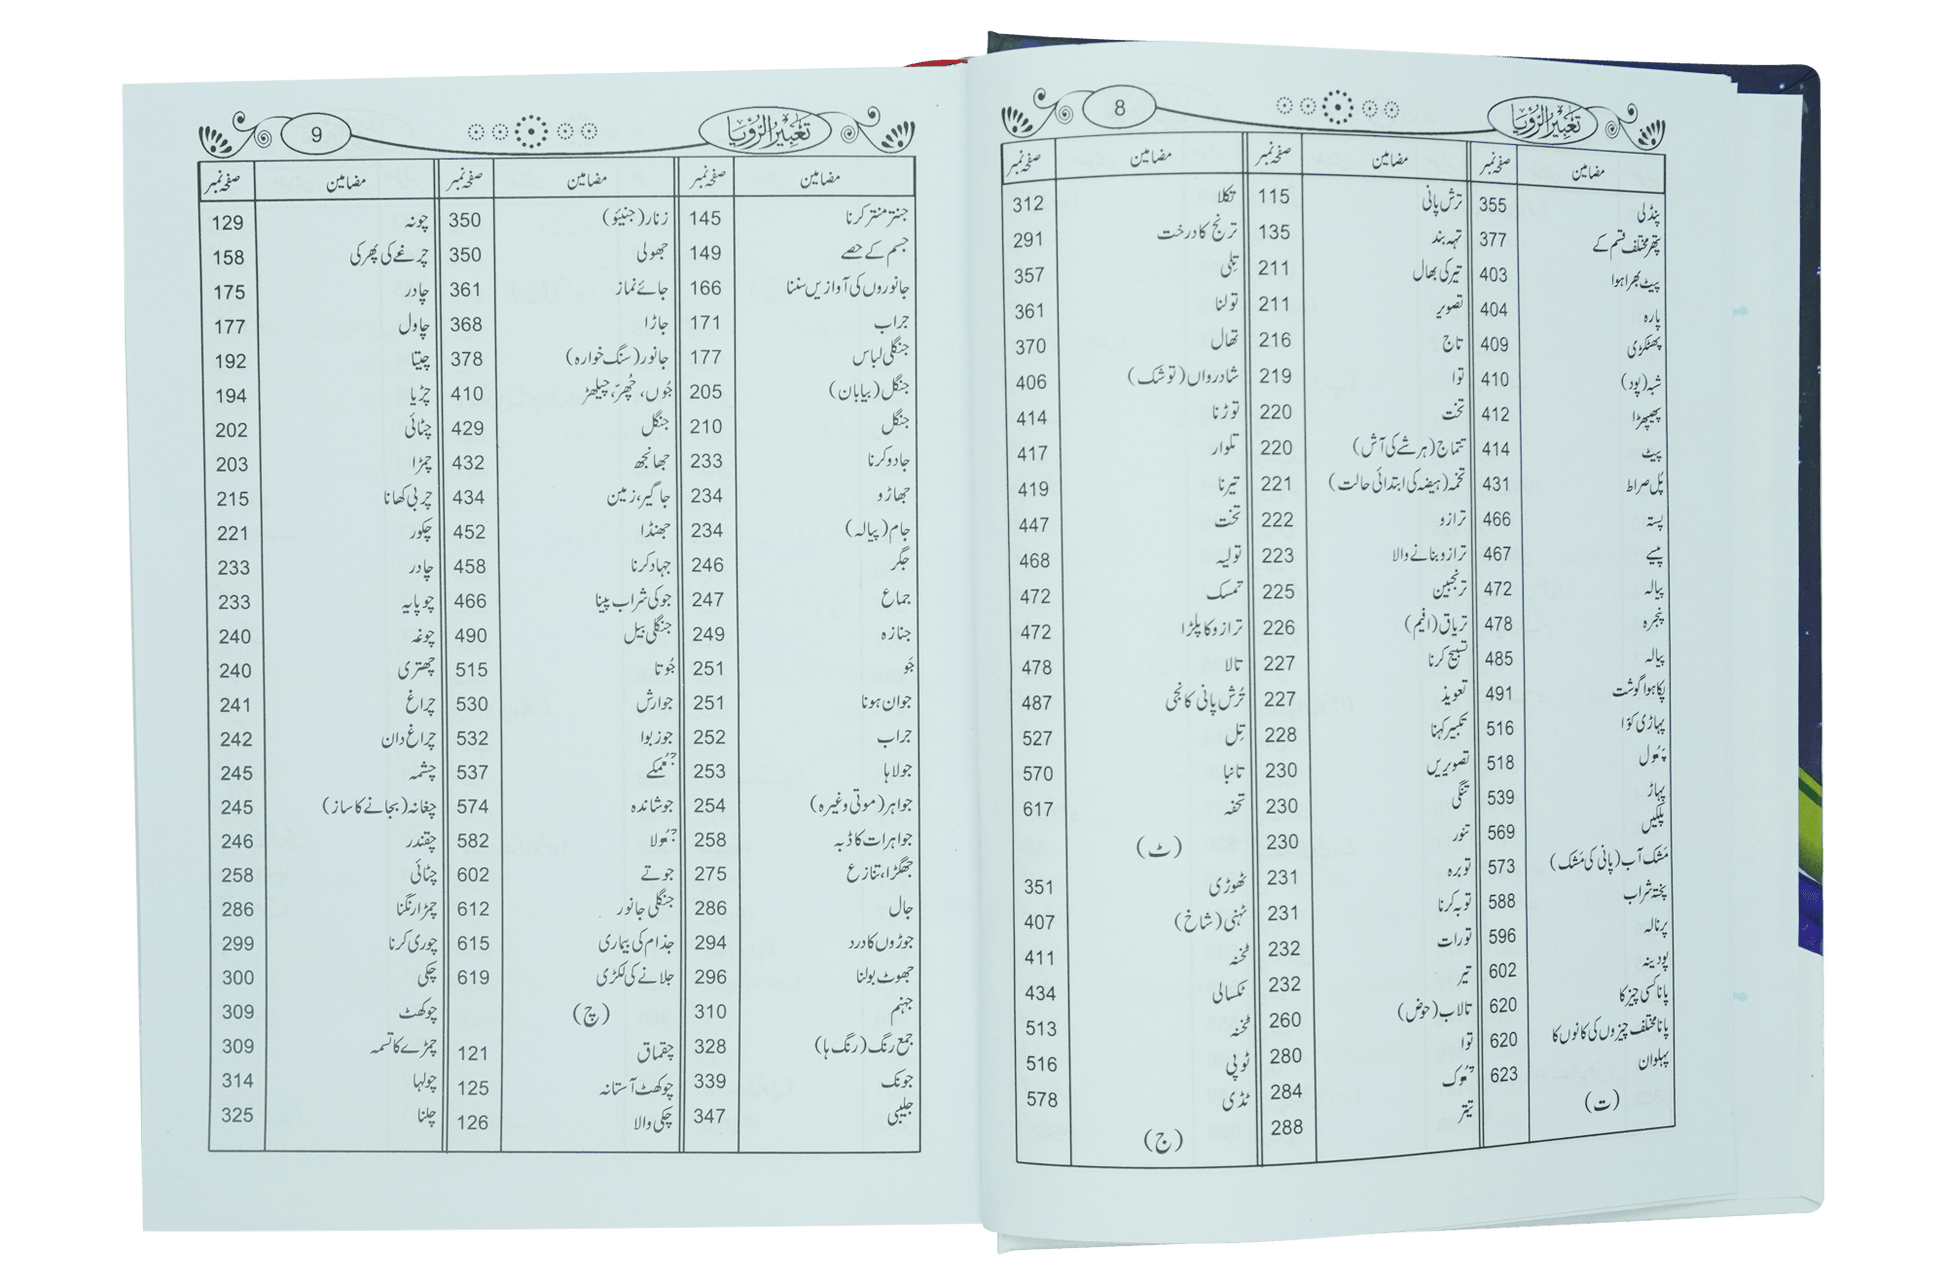 8
تعبیر الرؤیا
مضامین صفحہ نمبر
پنڈلی 355
پتھر مختلف قسم کے 377
پیٹ بھرا ہوا 403
پارہ 404
پھٹکڑی 409
شبہ (پود) 410
پھیپھڑا 412
پیٹ 414
پُل صراط 431
پستہ 466
پیسے 467
پیالہ 472
پنجرہ 478
پیالہ 485
پکا ہوا گوشت 491
پہاڑی کوّا 516
پھُول 518
پہاڑ 539
پلکیں 569
مَشک آب (پانی کی مَشک) 573
پختہ شراب 588
پرنالہ 596
پودینہ 602
پانا کسی چیز کا 620
پانا مختلف چیزوں کی کانوں کا 620
پہلوان 623
(ت)
مضامین صفحہ نمبر
ترش پانی 115
تہہ بند 135
تیر کی بھال 211
تصویر 211
تاج 216
توا 219
تخت 220
تتماج (ہر شے کی آش) 220
تخمہ (ہیضہ کی ابتدائی حالت) 221
ترازو 222
ترازو بنانے والا 223
ترنجبین 225
تریاق (افیم) 226
تسبیح کرنا 227
تعویذ 227
تکبیر کہنا 228
تصویریں 230
تنگی 230
تنور 230
توبرہ 231
توبہ کرنا 231
تورات 232
تیر 232
تالاب (حوض) 260
توا 280
تھُوک 284
تیتر 288
مضامین صفحہ نمبر
تکلا 312
ترنج کا درخت 291
تِلی 357
تولنا 361
تھال 370
شادرواں (توشک) 406
توڑنا 414
تلوار 417
تیرنا 419
تخت 447
تولیہ 468
تمسک 472
ترازو کا پلڑا 472
تالا 478
تُرش پانی کانجی 487
تِل 527
تانبا 570
تحفہ 617
(ٹ)
ٹھوڑی 351
ٹہنی (شاخ) 407
ٹخنہ 411
ٹکسالی 434
ٹخنہ 513
ٹوپی 516
ٹڈی 578
(ج)
9
تعبیر الرؤیا
مضامین صفحہ نمبر
جنتر منتر کرنا 145
جسم کے حصے 149
جانوروں کی آوازیں سننا 166
جراب 171
جنگلی لباس 177
جنگل (بیابان) 205
جنگل 210
جادو کرنا 233
جھاڑو 234
جام (پیالہ) 234
جگر 246
جماع 247
جنازہ 249
جَو 251
جوان ہونا 251
جراب 252
جولاہا 253
جواہر (موتی وغیرہ) 254
جواہرات کا ڈبہ 258
جھگڑا، تنازع 275
جال 286
جوڑوں کا درد 294
جھوٹ بولنا 296
جہنم 310
جمع رنگ (رنگ ہا) 328
جونک 339
جلیبی 347
مضامین صفحہ نمبر
زنار (جنیئو) 350
جھولی 350
جائے نماز 361
جاڑا 368
جانور (سنگ خوارہ) 378
جُوں، چُھر، چیلھڑ 410
جنگل 429
جھانجھ 432
جاگیر، زمین 434
جھنڈا 452
جہاد کرنا 458
جو کی شراب پینا 466
جنگلی بیل 490
جُوتا 515
جوارش 530
جوز بوا 532
جھُمکے 537
جوشاندہ 574
جھُولا 582
جوتے 602
جنگلی جانور 612
جذام کی بیماری 615
جلانے کی لکڑی 619
(چ)
چقماق 121
چوکھٹ آستانہ 125
چکی والا 126
مضامین صفحہ نمبر
چونہ 129
چرغے کی پھرکی 158
چادر 175
چاول 177
چیتا 192
چڑیا 194
چٹائی 202
چمڑا 203
چربی کھانا 215
چکور 221
چادر 233
چوپایہ 233
چوغہ 240
چھتری 240
چراغ 241
چراغ دان 242
چشمہ 245
چغانہ (بجانے کا ساز) 245
چقندر 246
چٹائی 258
چمڑا رنگنا 286
چوری کرنا 299
چکی 300
چوکھٹ 309
چمڑے کا تسمہ 309
چولہا 314
چلنا 325